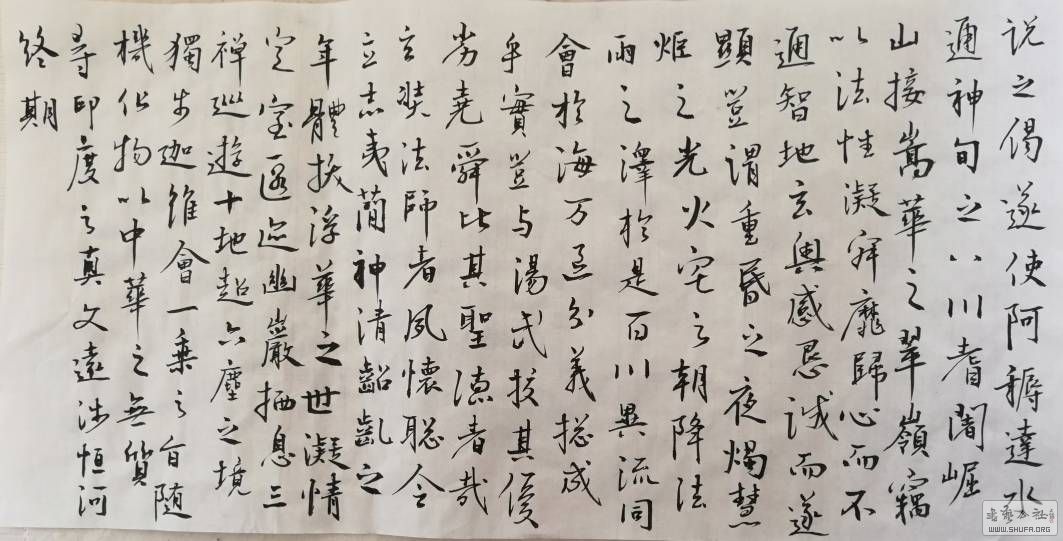 说之偈遂使阿耨達水
通神甸之八川耆闍崛
山接嵩華之翠嶺竊
以法性凝寂靡歸心而不
通智地玄奥感恳诚而遂
顯豈謂重昏之夜燭慧
炬之光火宅之朝降法
雨之澤於是百川異流同
會於海万區分義揔成
乎實豈与湯武校其優
劣堯舜比其聖德者哉
玄奘法師者夙懷聪令
立志夷簡神清齠齔之
年體拔浮華之世凝情
定室匿迹幽巖栖息三
禅巡遊十地超六塵之境
獨步迦維會一乘之旨随
機化物以中華之無質
尋印度之真文遠涉恒河
终期
WWW.SHUFA.ORG